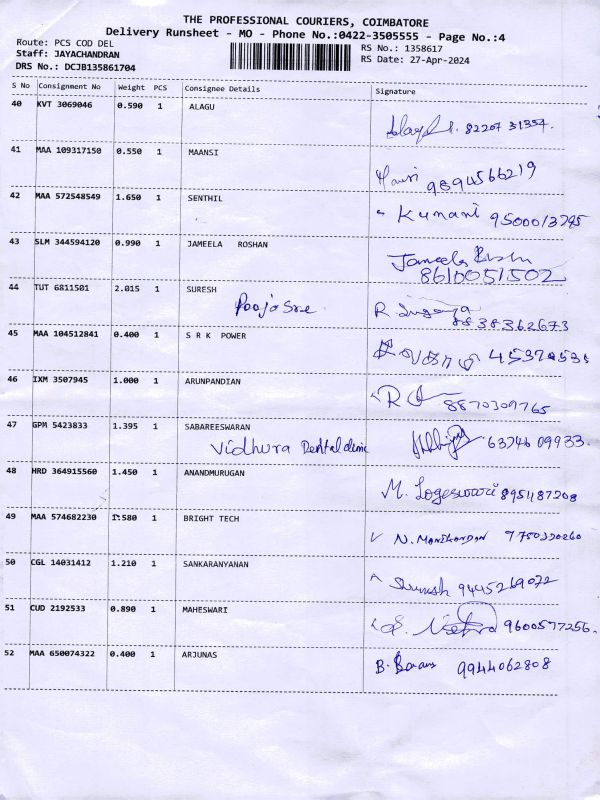 THE PROFESSIONAL COURIERS, COIMBATORE
Delivery Runsheet - MO - Phone No.:0422-3505555 - Page No.:4
Route: PCS COD DEL
RS No.: 1358617
Staff: JAYACHANDRAN
RS Date: 27-Apr-2024
DRS No.: DCJB135861704
S No Consignment No Weight PCS Consignee Details Signature
40 KVT 3069046 0.590 1 ALAGU
82207 31354.
41 MAA 109317150 0.550 1 MAANSI
9894566219
42 MAA 572548549 1.650 1 SENTHIL
Kumani 9500013745
43 SLM 344594120 0.990 1 JAMEELA ROSHAN
Jameela
8610051502
44 TUT 6811501 2.015 1 SURESH
Pooja Sree R.
8838362673
45 MAA 104512841 0.400 1 S R K POWER
46 IXM 3507945 1.000 1 ARUNPANDIAN
8870309765
47 GPM 5423833 1.395 1 SABAREESWARAN
Vidhura Dental clinic 63746 09933.
48 HRD 364915560 1.450 1 ANANDMURUGAN
M. Logeswari 895487208
49 MAA 574682230 1.580 1 BRIGHT TECH
N. MANIKANDAN 7750320260
50 CGL 14031412 1.210 1 SANKARANYANAN
9445269072
51 CUD 2192533 0.890 1 MAHESWARI
9600577256.
52 MAA 650074322 0.400 1 ARJUNAS
B. 9944062808